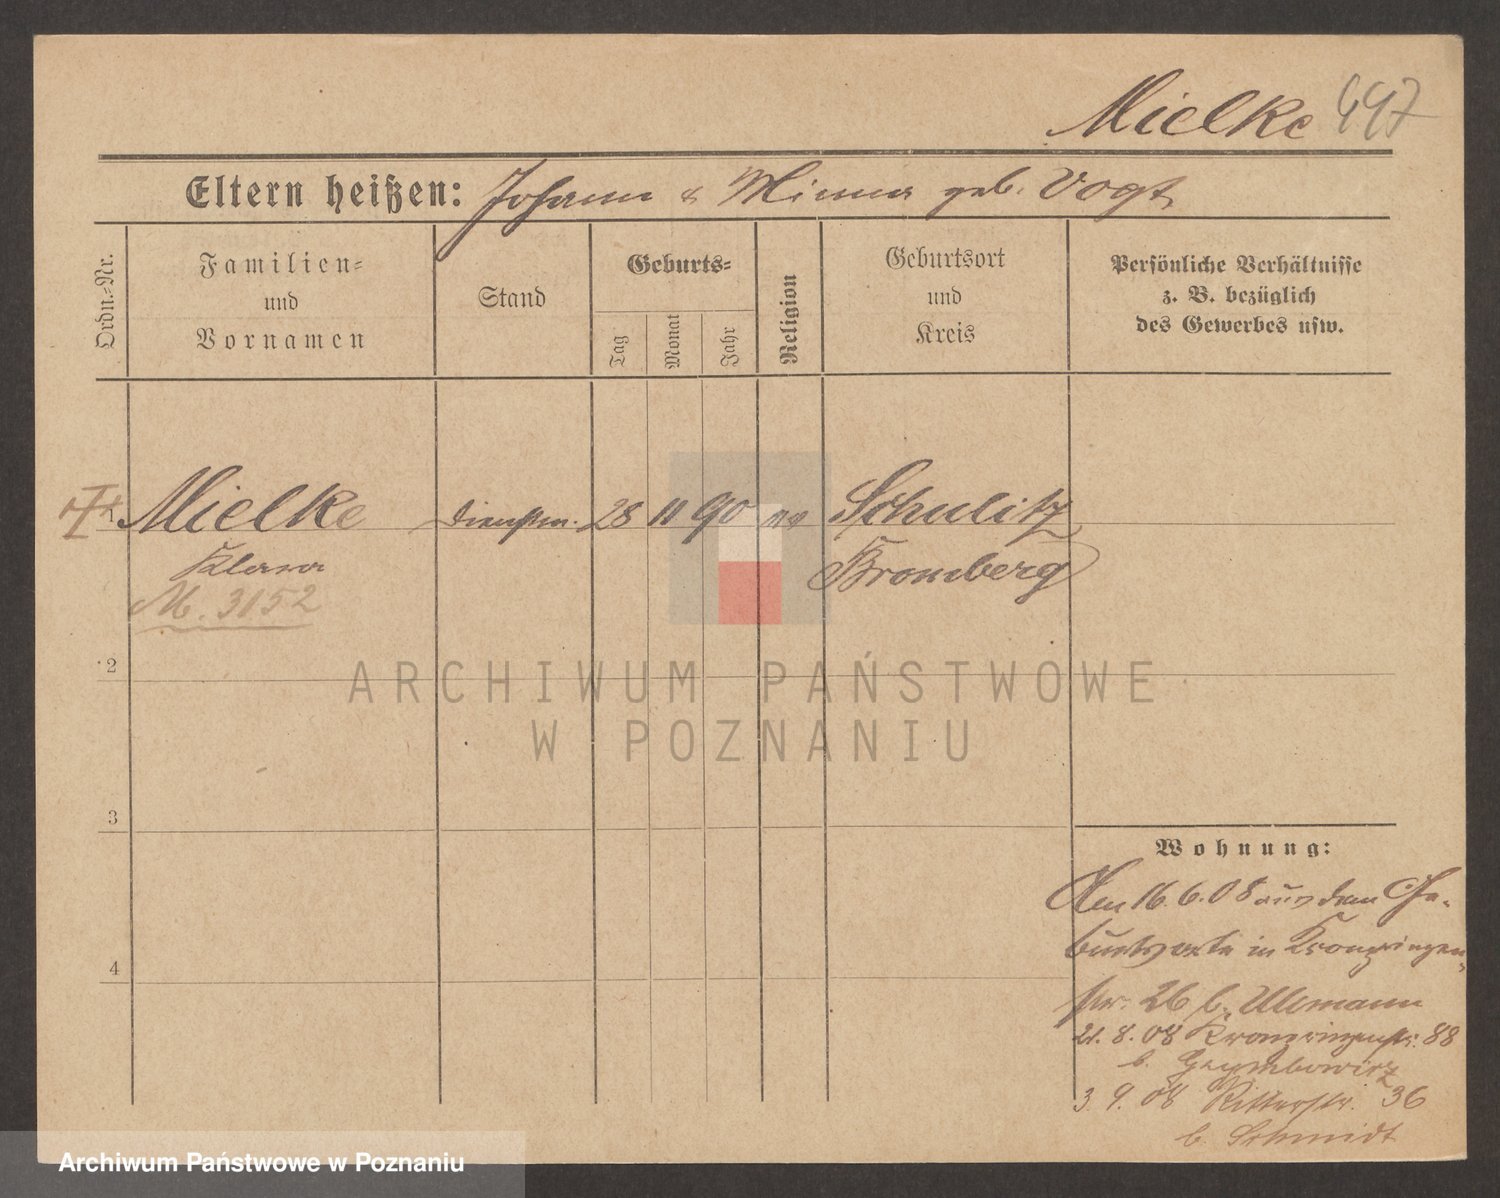 Mielke 447
Eltern heißen: Johann & Minna geb. Vogt
Ordn.-Nr.
Familien-
und
Vornamen
Stand
Geburts-
Tag
Monat
Jahr
Religion
Geburtsort
und
Kreis
Persönliche Verhältnisse
z. B. bezüglich
des Gewerbes usw.
1 Mielke Dienstm. 28 11 90 ev Schulitz
Klara Bromberg
M. 3152
2
3
4
Wohnung:
Am 16.6.08 aus dem Ge-
burtsorte in Kronprinzen-
str. 26 b. Ullmann
21.8.08 Kronprinzenstr. 88
b.
3.9.08 Ritterstr. 36
b. Schmidt
ARCHIWUM PAŃSTWOWE
W POZNANIU
Archiwum Państwowe w Poznaniu